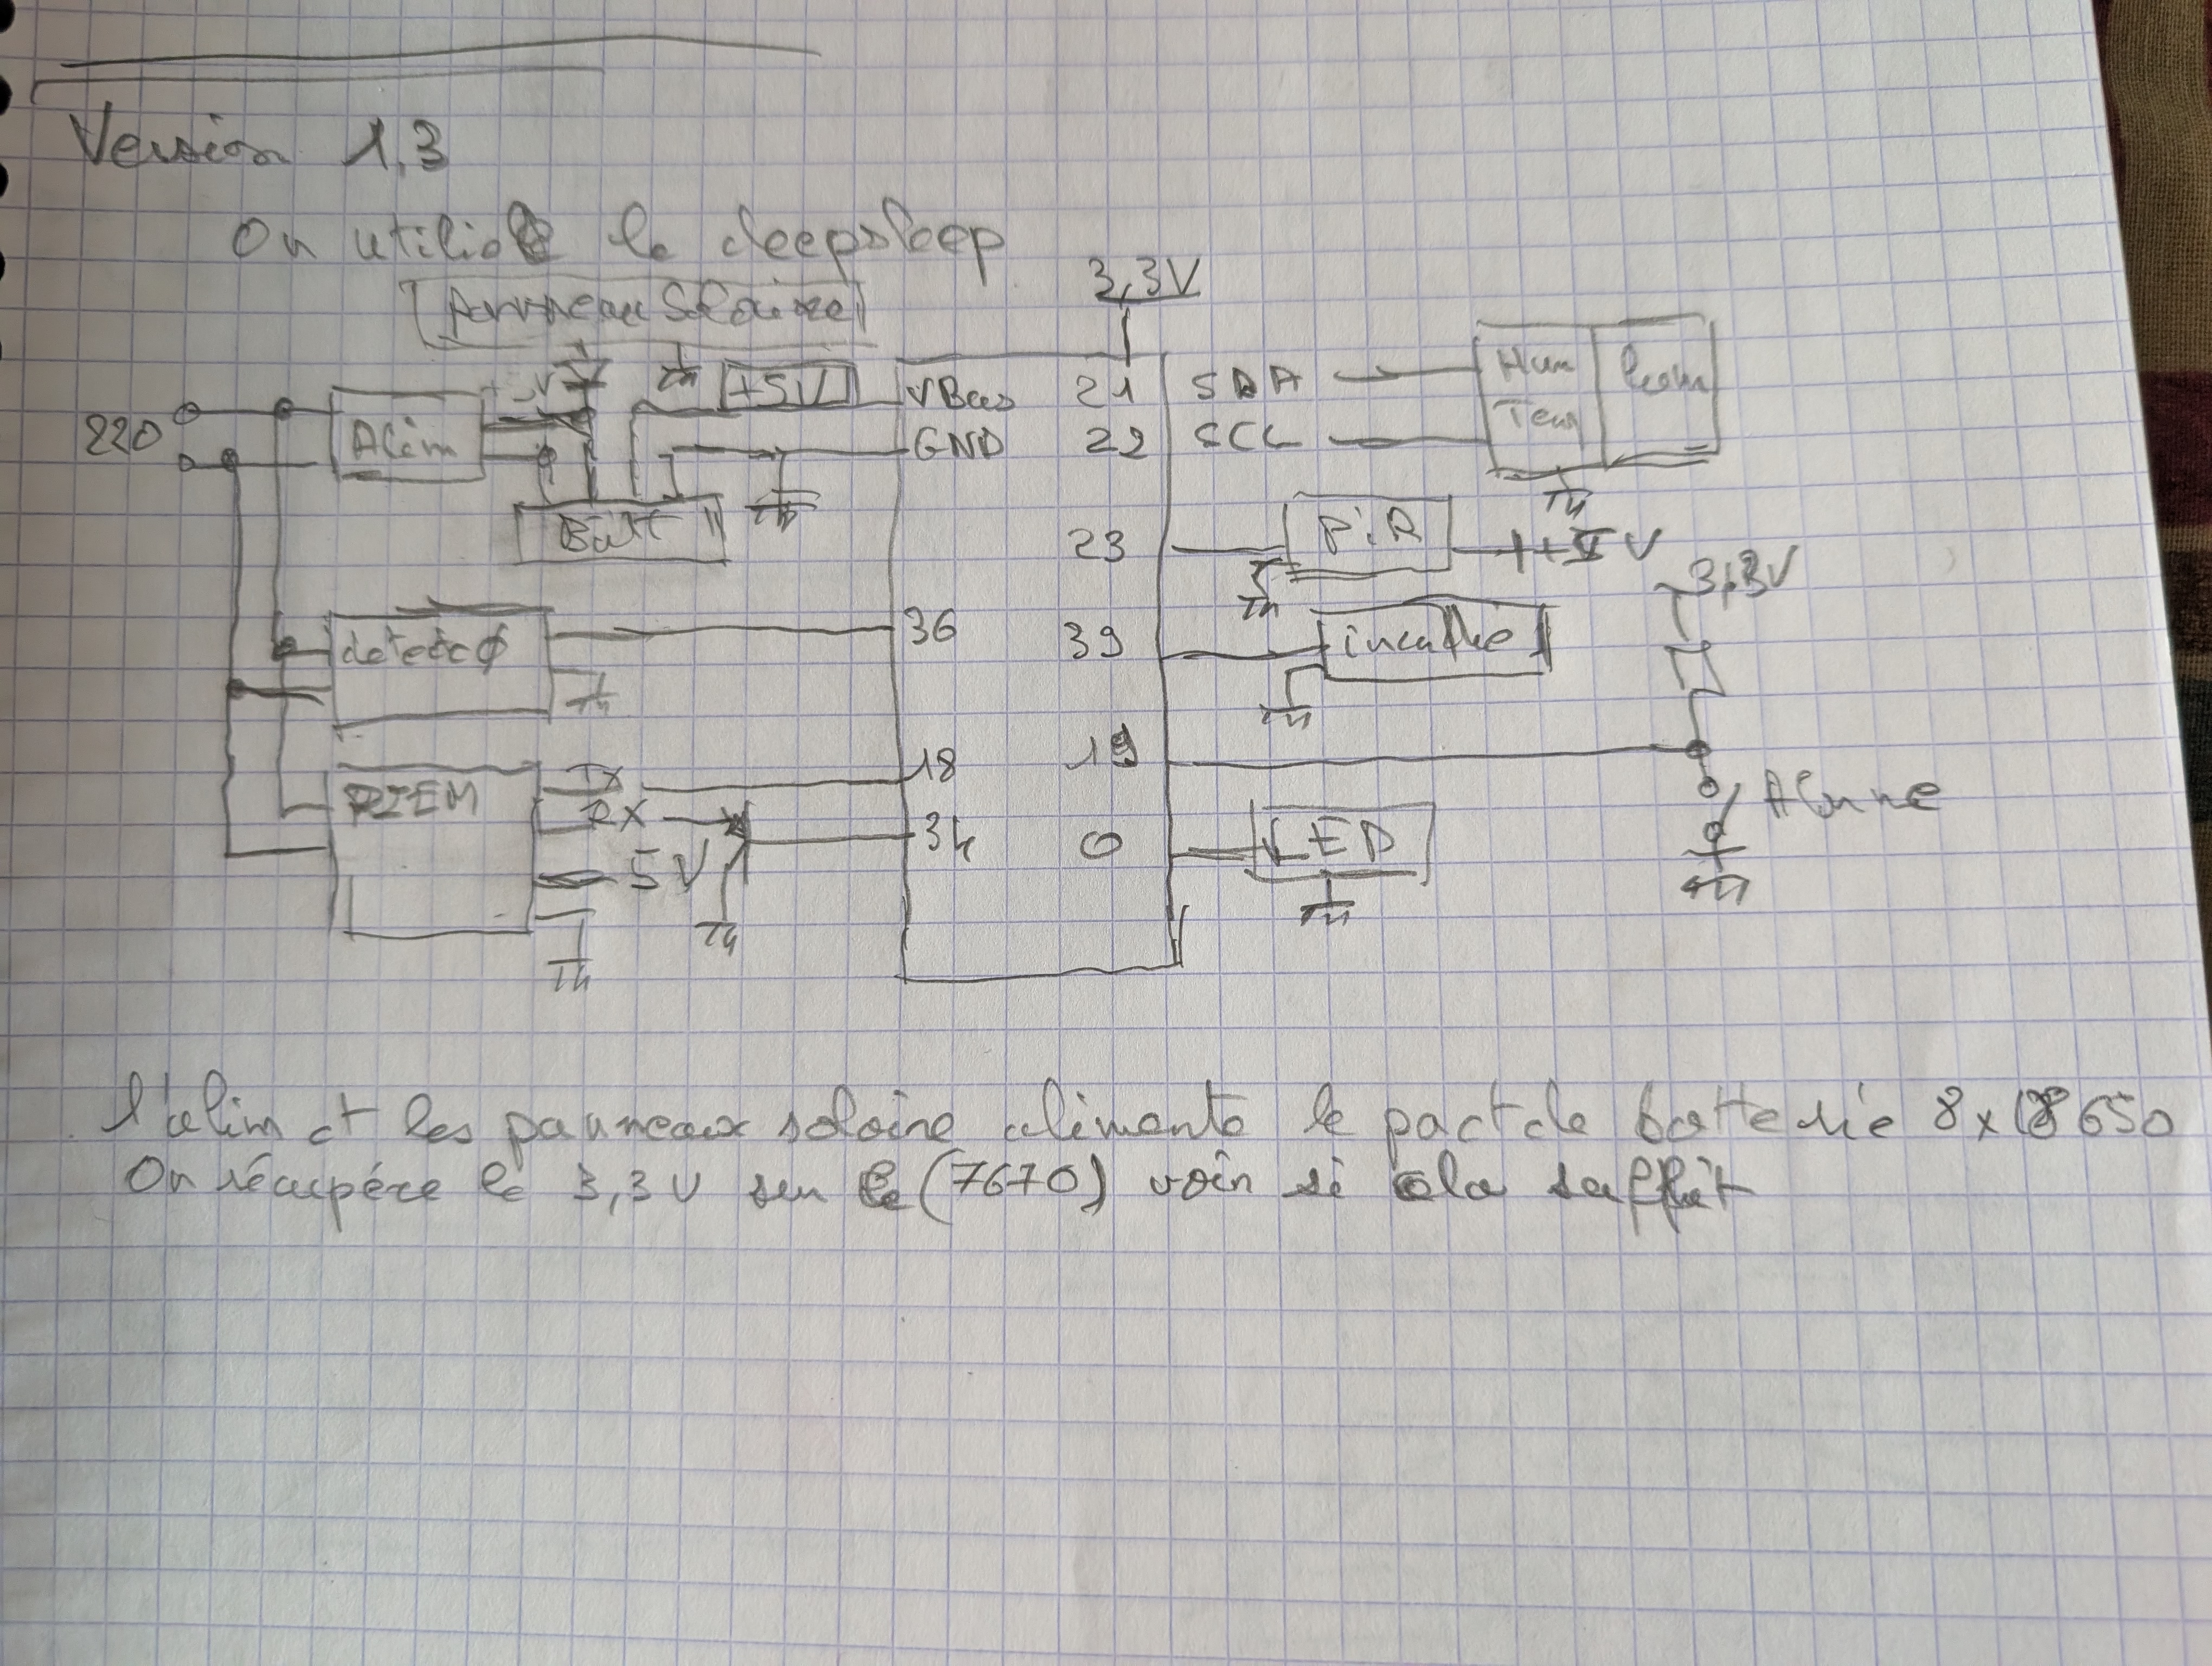 Version 1,3
On utilise le deepsleep
Panneau Solaire
3,3V
220
Alim
+5V
+5V
VBus
21
SDA
Hum
Temp
GND
22
SCL
Batt
23
PiR
+5V
3,3V
detect φ
36
39
incendie
PZEM
TX
18
19
RX
34
0
LED
Alarme
5V
l'alim et les panneaux solaire alimente le pact de batterie 8x18650
On récupére le 3,3V sur le (7670) voir si cela suffit